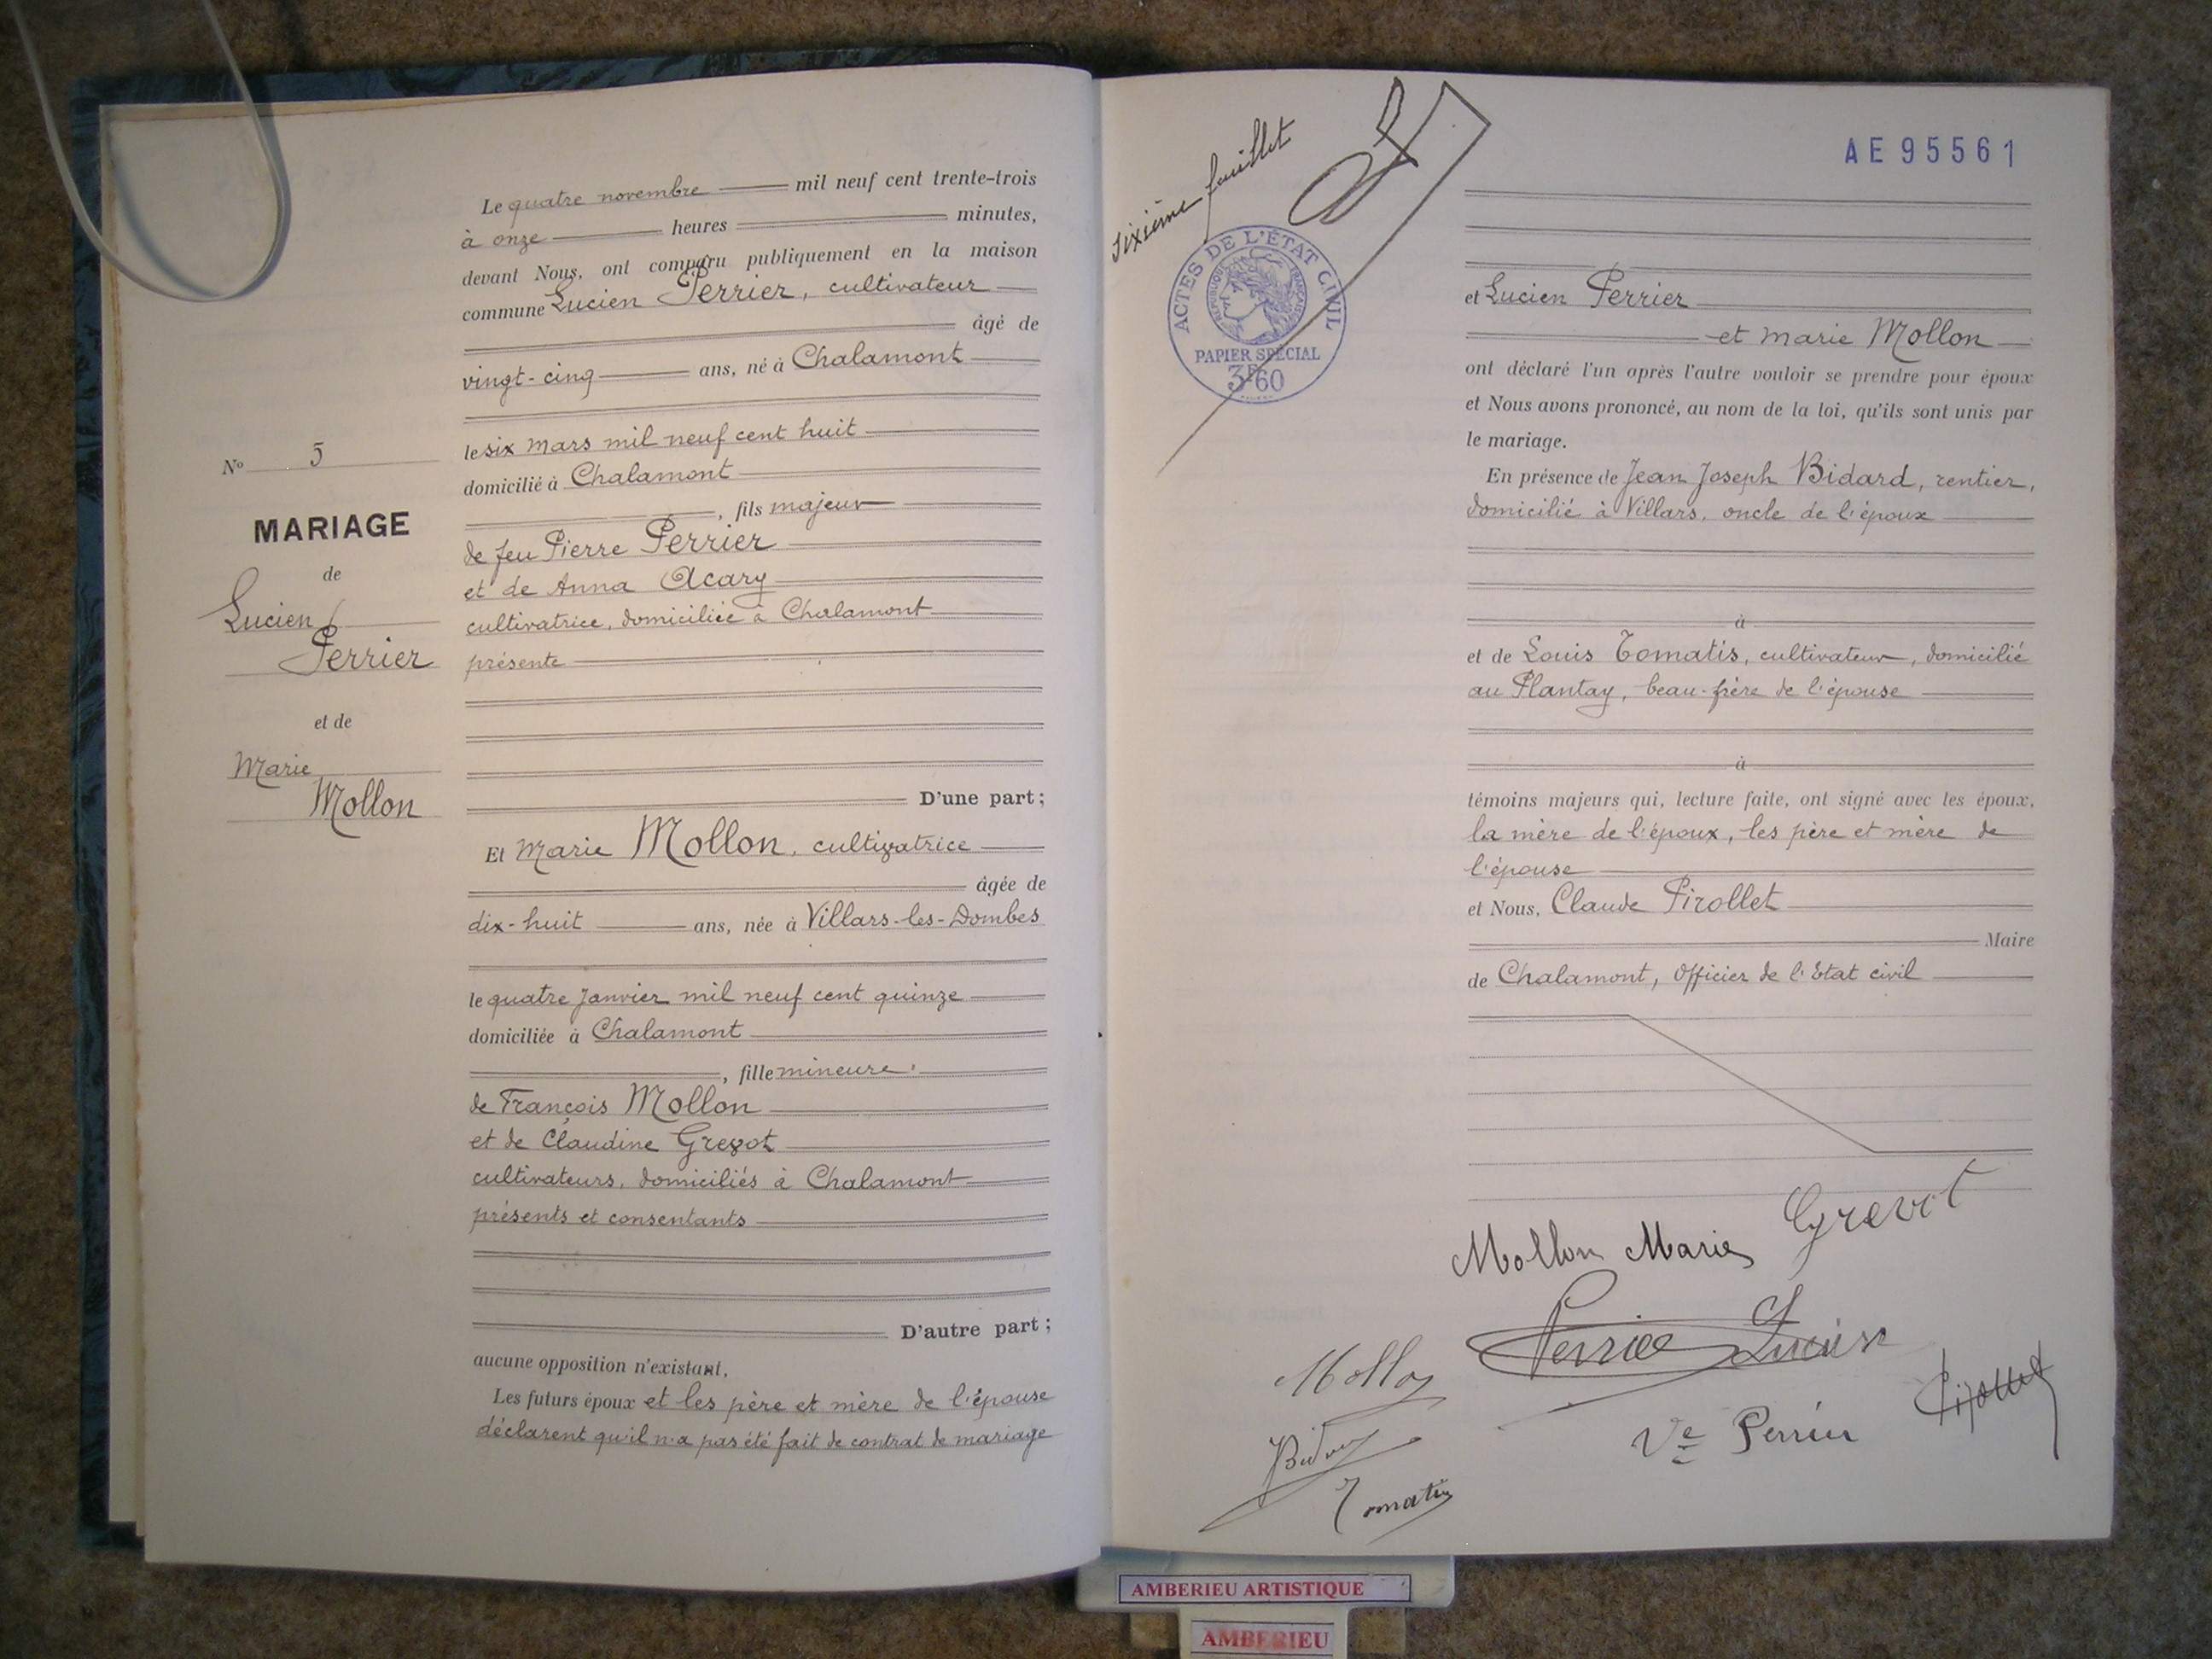 Le quatre novembre mil neuf cent trente-trois
à onze heures minutes,
devant Nous, ont comparu publiquement en la maison
commune Lucien Perrier, cultivateur
âgé de
vingt-cinq ans, né à Chalamont
le six mars mil neuf cent huit
domicilié à Chalamont
, fils majeur
de feu Pierre Perrier
et de Anna Acary
cultivatrice, domiciliée à Chalamont
présente
D'une part;
Et Marie Mollon, cultivatrice
âgée de
dix-huit ans, née à Villars-les-Dombes
le quatre Janvier mil neuf cent quinze
domiciliée à Chalamont
, fille mineure.
de François Mollon
et de Claudine Grevot
cultivateurs, domiciliés à Chalamont
présents et consentants
D'autre part;
aucune opposition n'existant,
Les futurs époux et les père et mère de l'épouse
déclarent qu'il n'a pas été fait de contrat de mariage
No 5
MARIAGE
de
Lucien
Perrier
et de
Marie
Mollon
sixième feuillet
ACTES DE L'ÉTAT CIVIL
REPUBLIQUE FRANÇAISE
PAPIER SPÉCIAL
3F60
AE 95561
et Lucien Perrier
et Marie Mollon
ont déclaré l'un après l'autre vouloir se prendre pour époux
et Nous avons prononcé, au nom de la loi, qu'ils sont unis par
le mariage.
En présence de Jean Joseph Bidard, rentier,
domicilié à Villars, oncle de l'époux
à
et de Louis Tomatis, cultivateur, domicilié
au Plantay, beau-frère de l'épouse
à
témoins majeurs qui, lecture faite, ont signé avec les époux,
la mère de l'époux, les père et mère de
l'épouse
et Nous, Claude Pirollet
Maire
de Chalamont, Officier de l'Etat civil
Mollon Marie Grevot
Perrier Lucien
Mollon
Pirollet
Ve Perrier
Bidard
Tomatis
AMBERIEU ARTISTIQUE
AMBERIEU